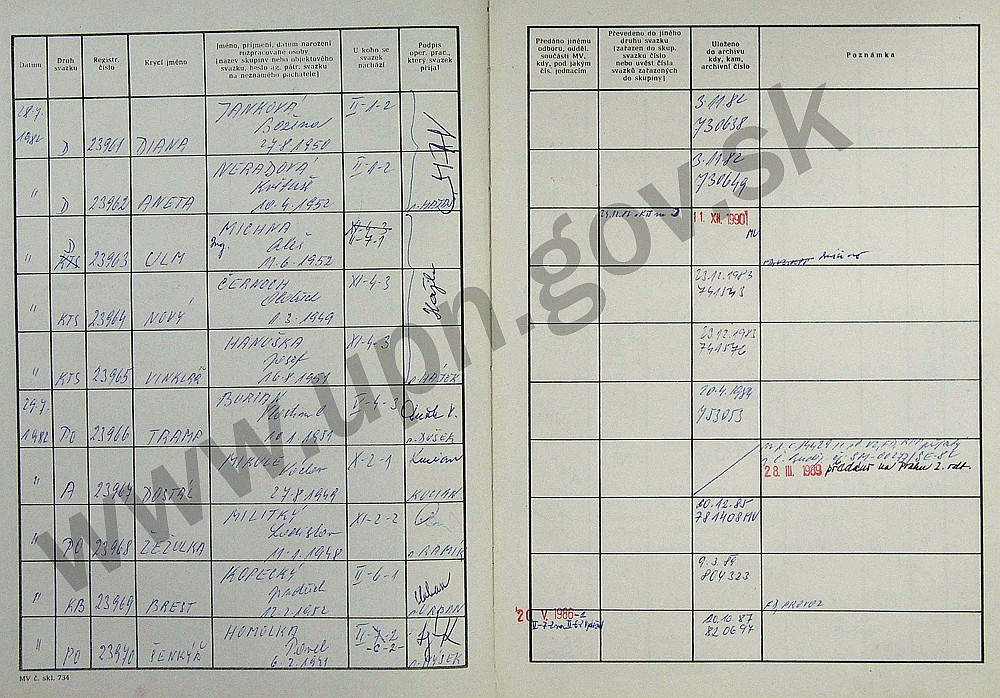 Datum
Druh svazku
Registr. číslo
Krycí jméno
Jméno, příjmení, datum narození
rozpracované osoby
(název skupiny nebo objektového
svazku, heslo ag. pátr. svazku
na neznámého pachatele)
U koho se
svazek
nachází
Podpis
oper. prac.,
který svazek
přijal
Předáno jinému
odboru, odděl.
součásti MV,
kdy, pod jakým
čís. jednacím
Převedeno do jiného
druhu svazku
(zařazen do skup.
svazku číslo
nebo uvést čísla
svazků zařazených
do skupiny)
Uloženo
do archivu
kdy, kam,
archivní číslo
Poznámka
28.7. 1982 D 23961 DIANA
JANKOVÁ
Božena
27.8.1950
II-1-2
3.11.82
730638
" D 23962 ANETA
NERADOVÁ
10.4.1952
II-1-2
n. HAJEK
3.11.82
730649
D
" KTS 23963 ULM
MICHNA
Ing. Aleš
11.6.1952
XI-4-3
II-7-1
11. XII. 1990
MV
" KTS 23964 NOVÝ
ČERNOCH
1.3.1949
XI-4-3
23.12.1983
741543
" KTS 23965 VINKLÁŘ
HANUŠKA
Josef
16.8.1951
XI-4-3
n. HÁJEK
23.12.1983
741576
29.7. 1982 PO 23966 TRAMP
BURIAN
10.1.1951
II-4-3
n. DUŠEK
20.4.1984
753053
" A 23967 DOSTÁL
MIKULE
Václav
27.8.1949
X-2-1
KUCIAN
28. III. 1989 předán na Prahu 2. odb.
" PO 23968 ZEŽULKA
MILITKÝ
Ladislav
11.1.1948
XI-2-2
20.12.85
781408 MV
" KB 23969 BREST
KOPECKÝ
Jindřich
12.2.1952
II-6-1
n. URBAN
9.3.89
804323
" PO 23970 ŠENKÝŘ
HOMOLKA
Pavel
6.2.1941
II-7-2
-6-2-
20. V. 1986
20.10.87
820697
MV č. skl. 734
www.upn.gov.sk